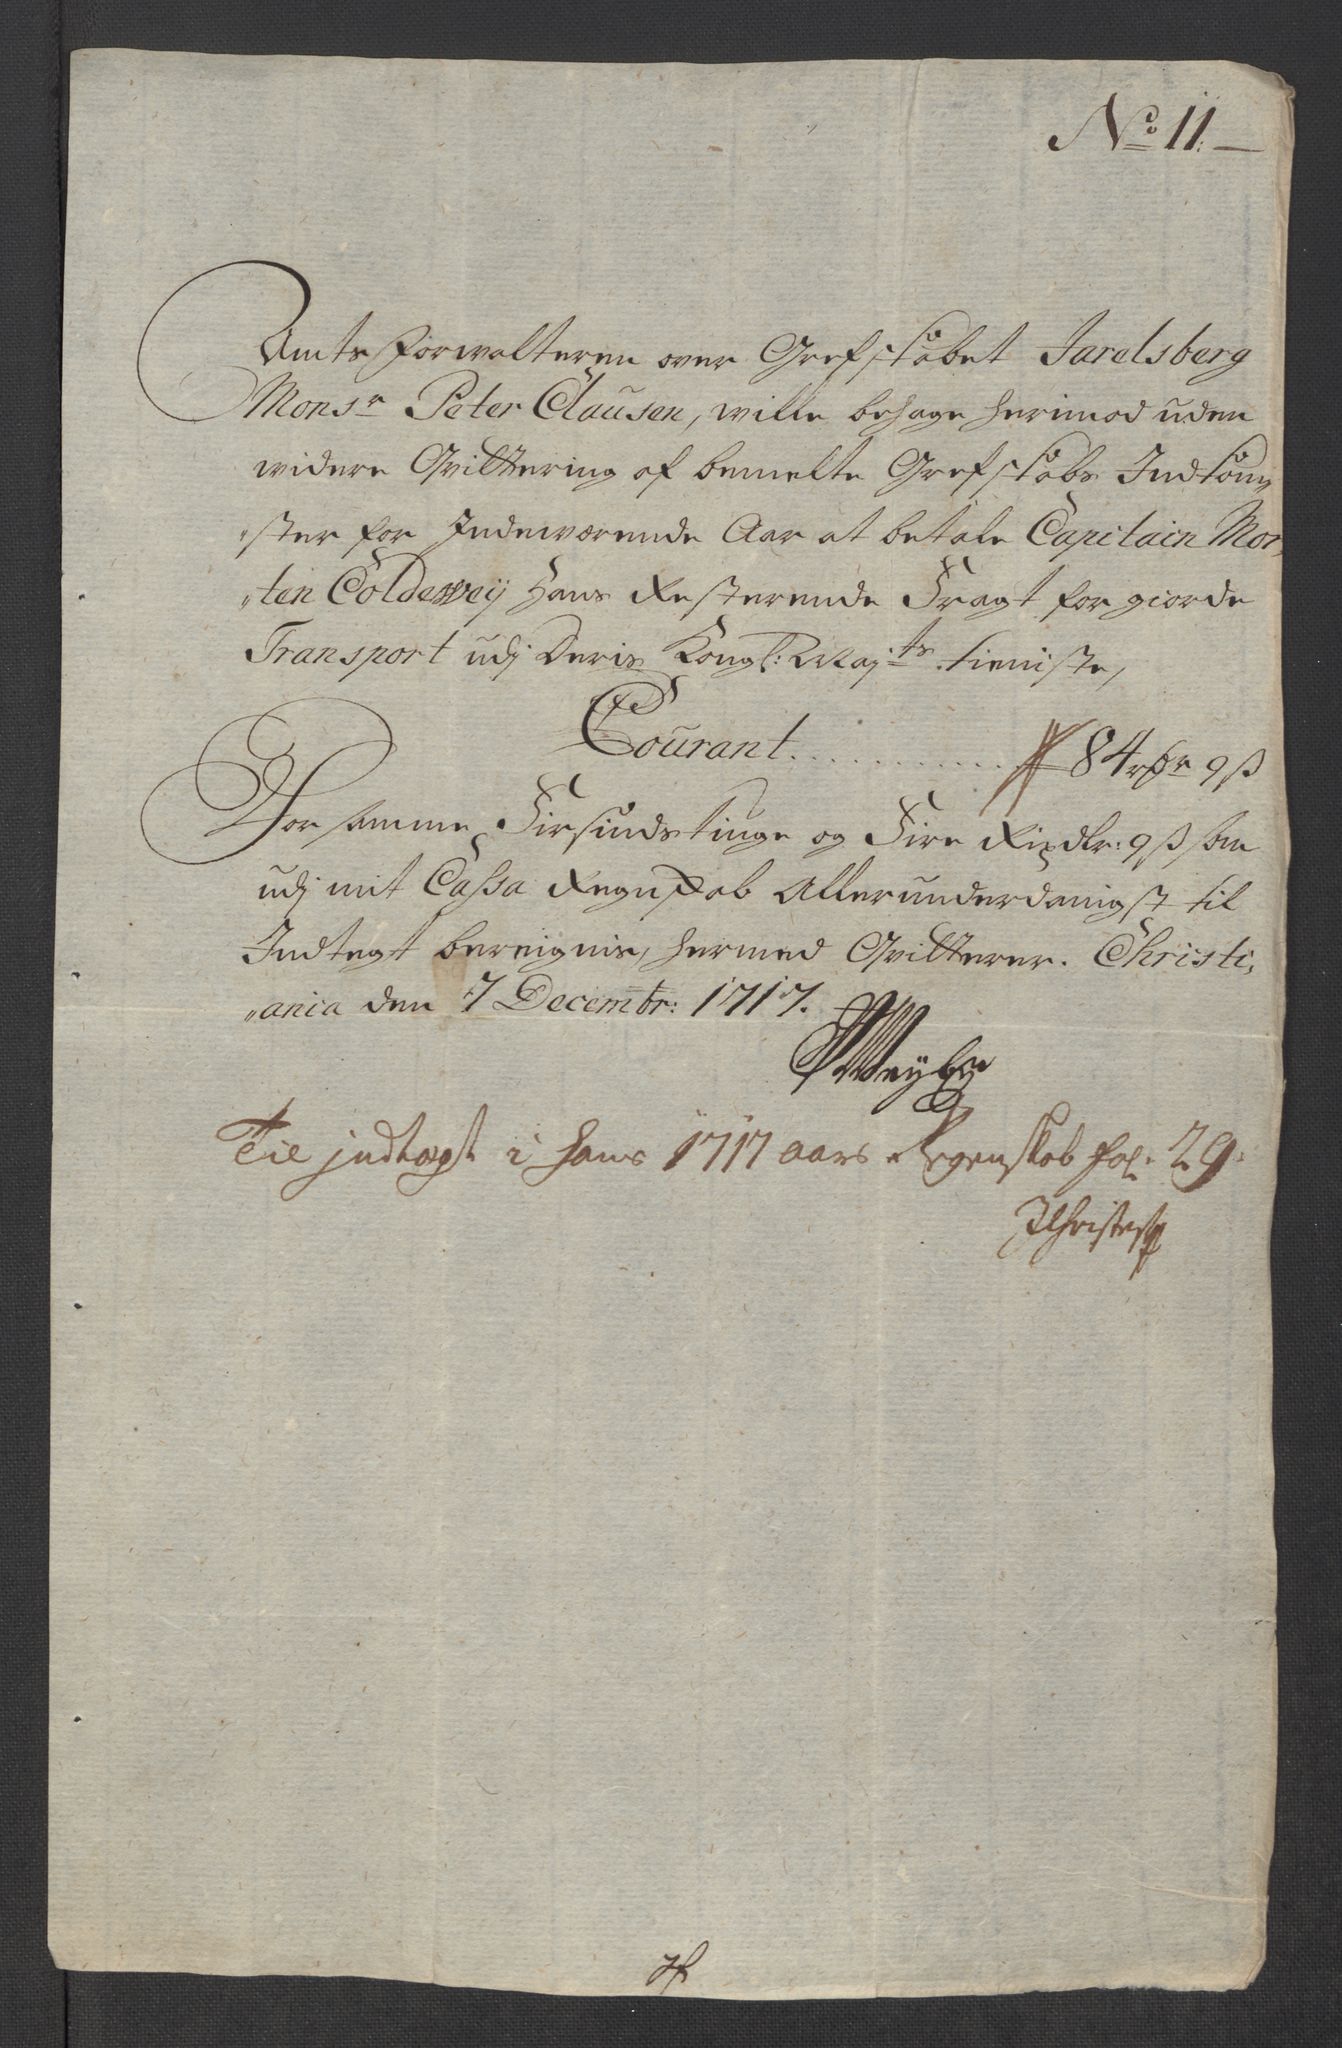 No 11.
Amts Forwalteren over Grefskabet Jarelsberg
Monsr Peter Clausen, wille behage herimod uden
widere Qvittering af bemelte Grefskabs Indkom„
„ster for Indeværende Aar at betale Capitain Mor„
„ten Coldewey Hans Resterende Fragt for giorde
Transport udj Deris Kongl: Mayts tieniste,
Courant . . . . . . . . . . . . 84 rdr 9 ß
For samme Firsindstiuge og Fire Rixdlr: 9 ß som
udj mit Cassa Regnskab Allerunderdanigst til
Indtegt bereignis, hermed Qvitterer. Christi„
„ania den 7 Decembr: 1717.
Til jndtægt i hans 1717 aars Regenskab fol: 29.